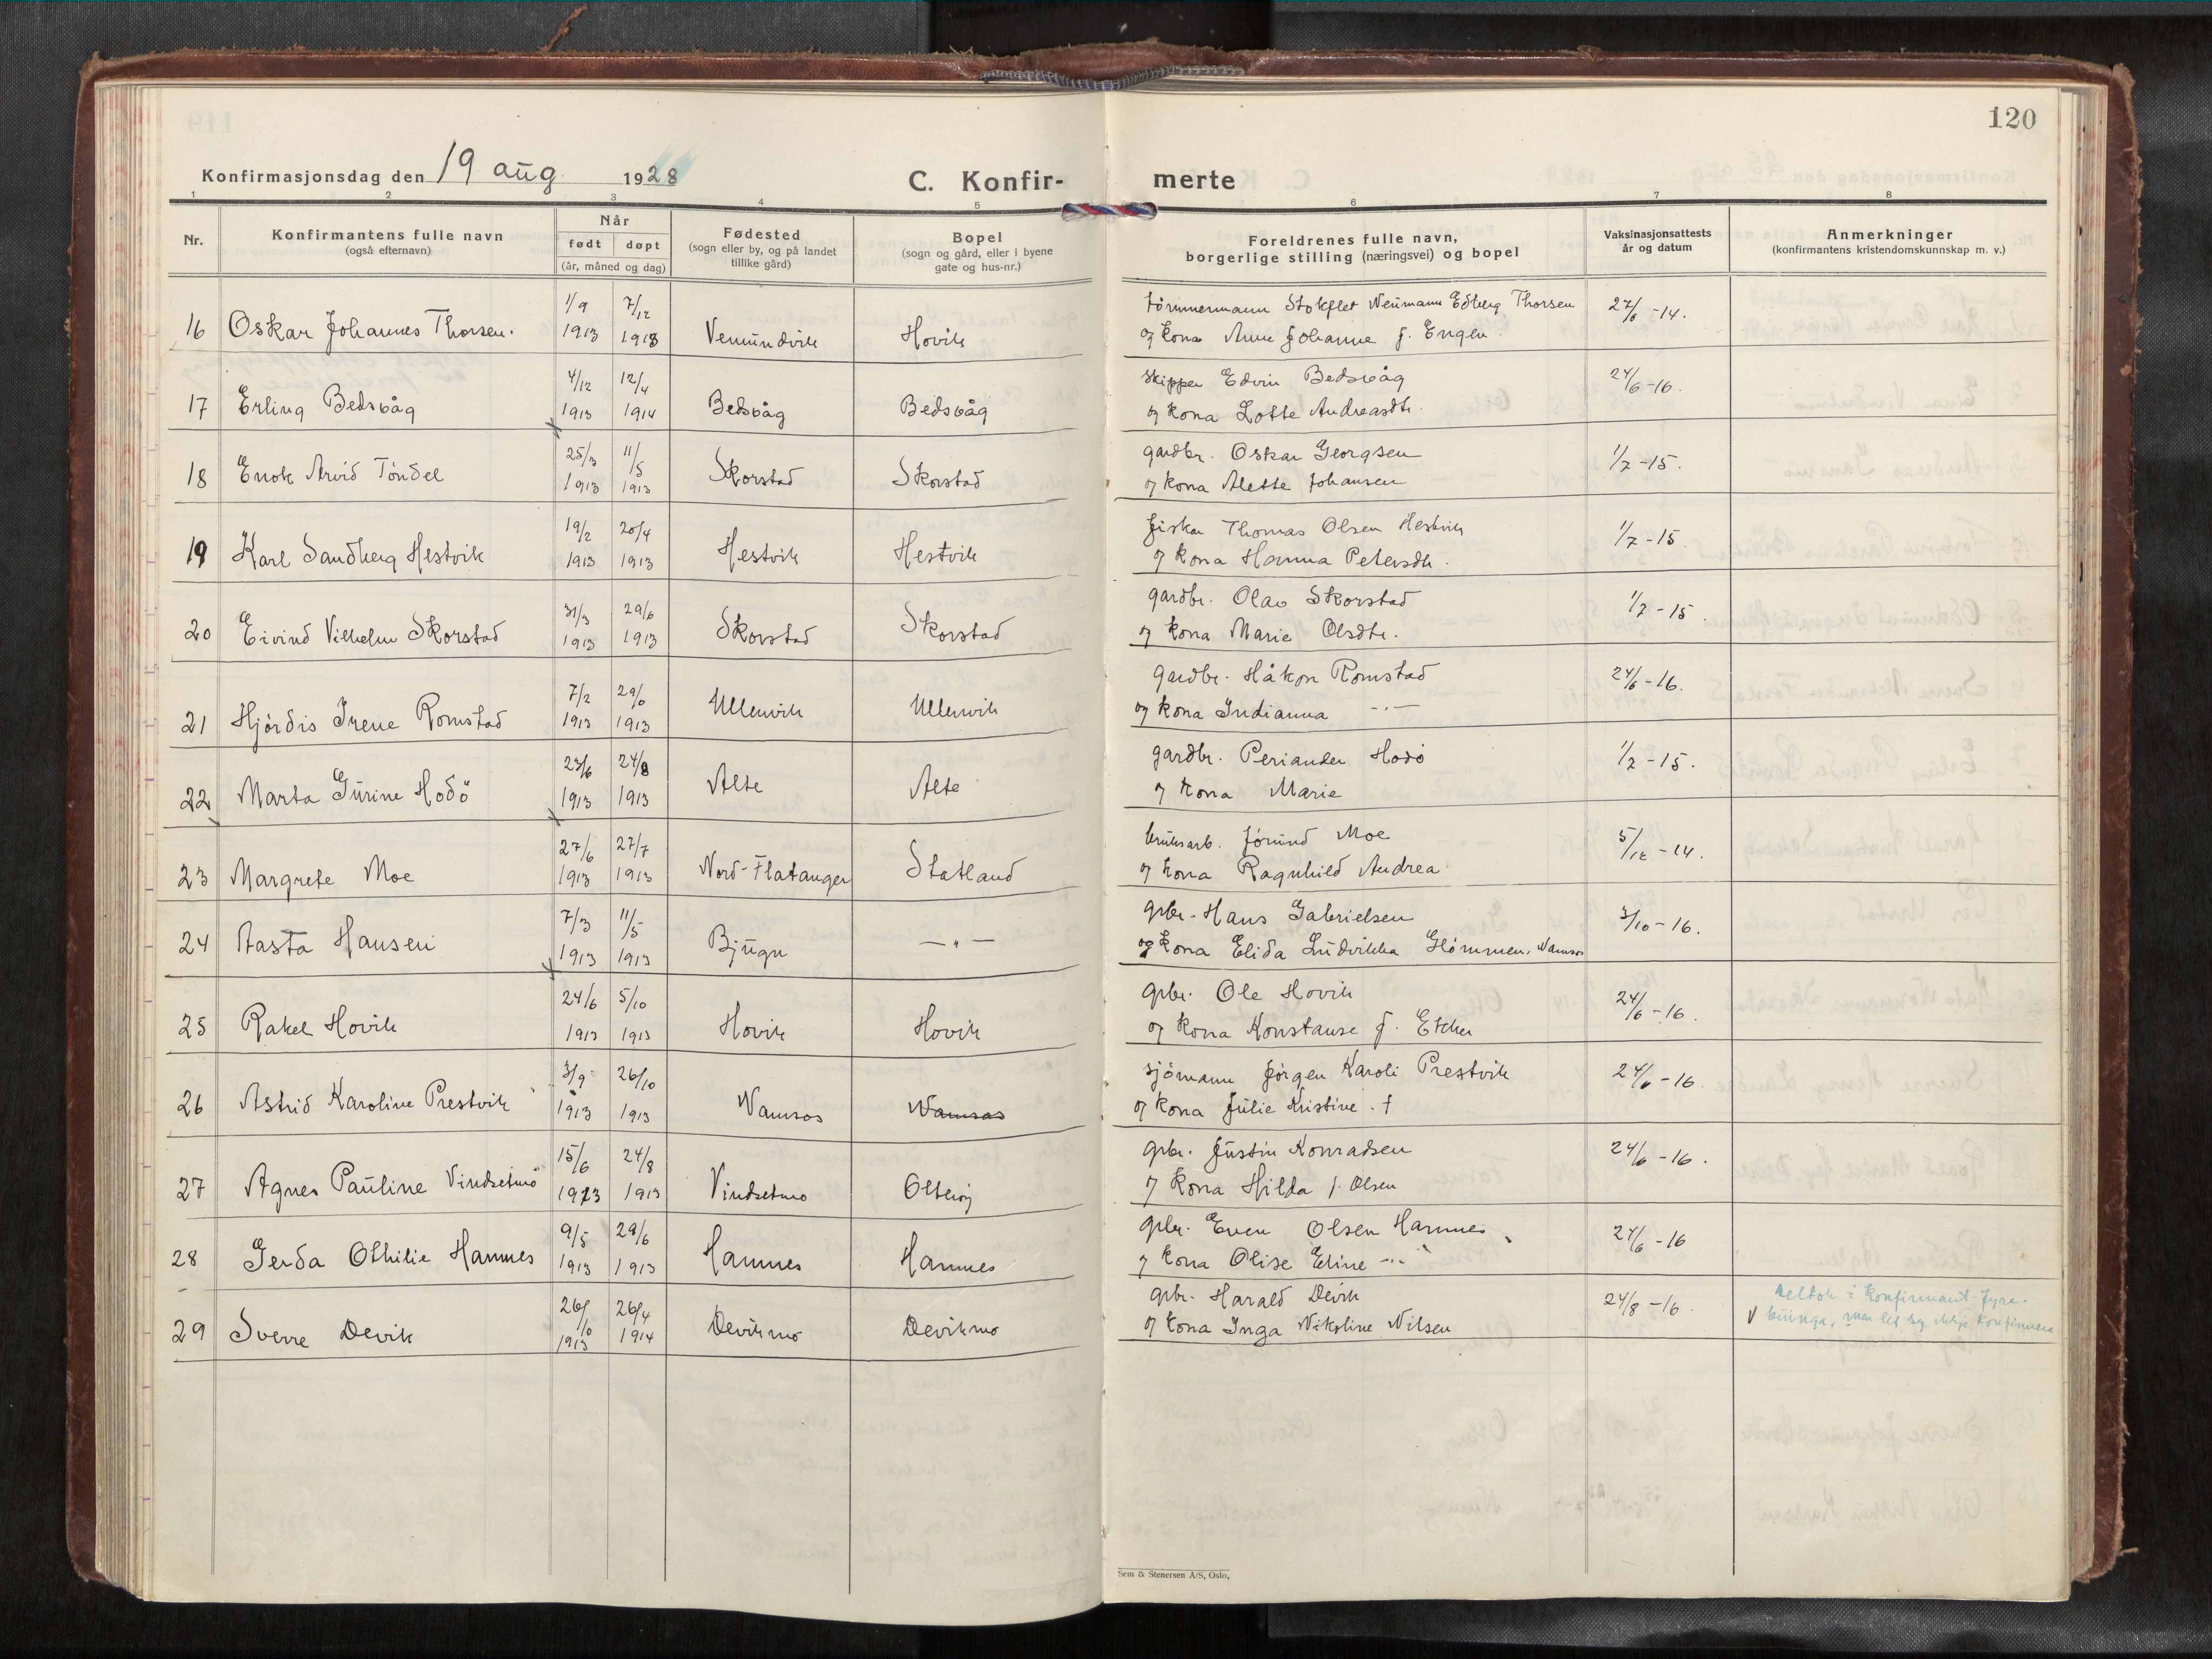 120
Konfirmasjonsdag den 19 aug. 1928
C. Konfir- merte
1 2 3 4 5 6 7 8
Nr.
Konfirmantens fulle navn
(også efternavn)
Når
født døpt
(år, måned og dag)
Fødested
(sogn eller by, og på landet
tillike gård)
Bopel
(sogn og gård, eller i byene
gate og hus-nr.)
Foreldrenes fulle navn,
borgerlige stilling (næringsvei) og bopel
Vaksinasjonsattests
år og datum
Anmerkninger
(konfirmantens kristendomskunnskap m. v.)
1/9 7/12 tömmermann Stokflet Neumann Edberg Thorsen 27/6 -14.
16 Oskar Johannes Thorsen. 1913 1913 Vemundvik Hovik og kona Anne Johanne f. Engen.
4/12 12/4 Skipper Edvin Bedsvåg 24/6 -16.
17 Erling Bedsvåg 1913 1914 Bedsvåg Bedsvåg og kona Lotte Andreasdtr.
25/3 11/5 gardbr. Oskar Georgsen 1/7 -15.
18 Enok Arvid Töndel 1913 1913 Skorstad Skorstad og kona Alette Johansen
19/2 20/4 fisker Thomas Olsen Hestvik 1/7 -15.
19 Karl Sandberg Hestvik 1913 1913 Hestvik Hestvik og kona Hanna Petersdtr.
31/3 29/6 gardbr. Olav Skorstad 1/7 -15.
20 Eivind Vilhelm Skorstad 1913 1913 Skorstad Skorstad og kona Marie Olsdtr.
7/2 29/6 gardbr. Håkon Romstad 24/6 -16.
21 Hjördis Irene Romstad 1913 1913 Ullervik Ullervik og kona Indianna -"-
23/6 24/8 gardbr. Periander Hodö 1/7 -15.
22 Marta Gurine Hodö 1913 1913 Alte Alte og kona Marie
27/6 27/7 bruksarb. Jörund Moe 5/12 -14.
23 Margrete Moe 1913 1913 Nord-Flatanger Statland og kona Ragnhild Andrea
7/3 11/5 grbr. Hans Gabrielsen 3/10 -16.
24 Aasta Hansen 1913 1913 Bjugn -"- og kona Elida Ludvikka Glömmen, Namsos
24/6 5/10 grbr. Ole Hovik 24/6 -16.
25 Rakel Hovik 1913 1913 Hovik Hovik og kona Konstanse f.
3/9 26/10 sjömann Jörgen Karoli Prestvik 24/6 -16
26 Astrid Karoline Prestvik 1913 1913 Namsos Namsos og kona Julie Kristine. †
15/6 24/8 grbr. Justin Konradsen 24/6 -16.
27 Agnes Pauline Vindsetmo 1913 1913 Vindsetmo Otteröj og kona Hilda f. Olsen
9/5 29/6 grbr. Even Olsen Hamnes 24/6 -16
28 Gerda Othilie Hamnes 1913 1913 Hamnes Hamnes og kona Olise Eline -"-
26/10 26/4 grbr. Harald Devik 24/8 -16. Deltok i konfirmant-fyre-
29 Sverre Devik 1913 1914 Devikmo Devikmo og kona Inga Nikoline Nilsen V buinga, men let seg ikkje konfirmera
Sem & Stenersen A/S, Oslo,